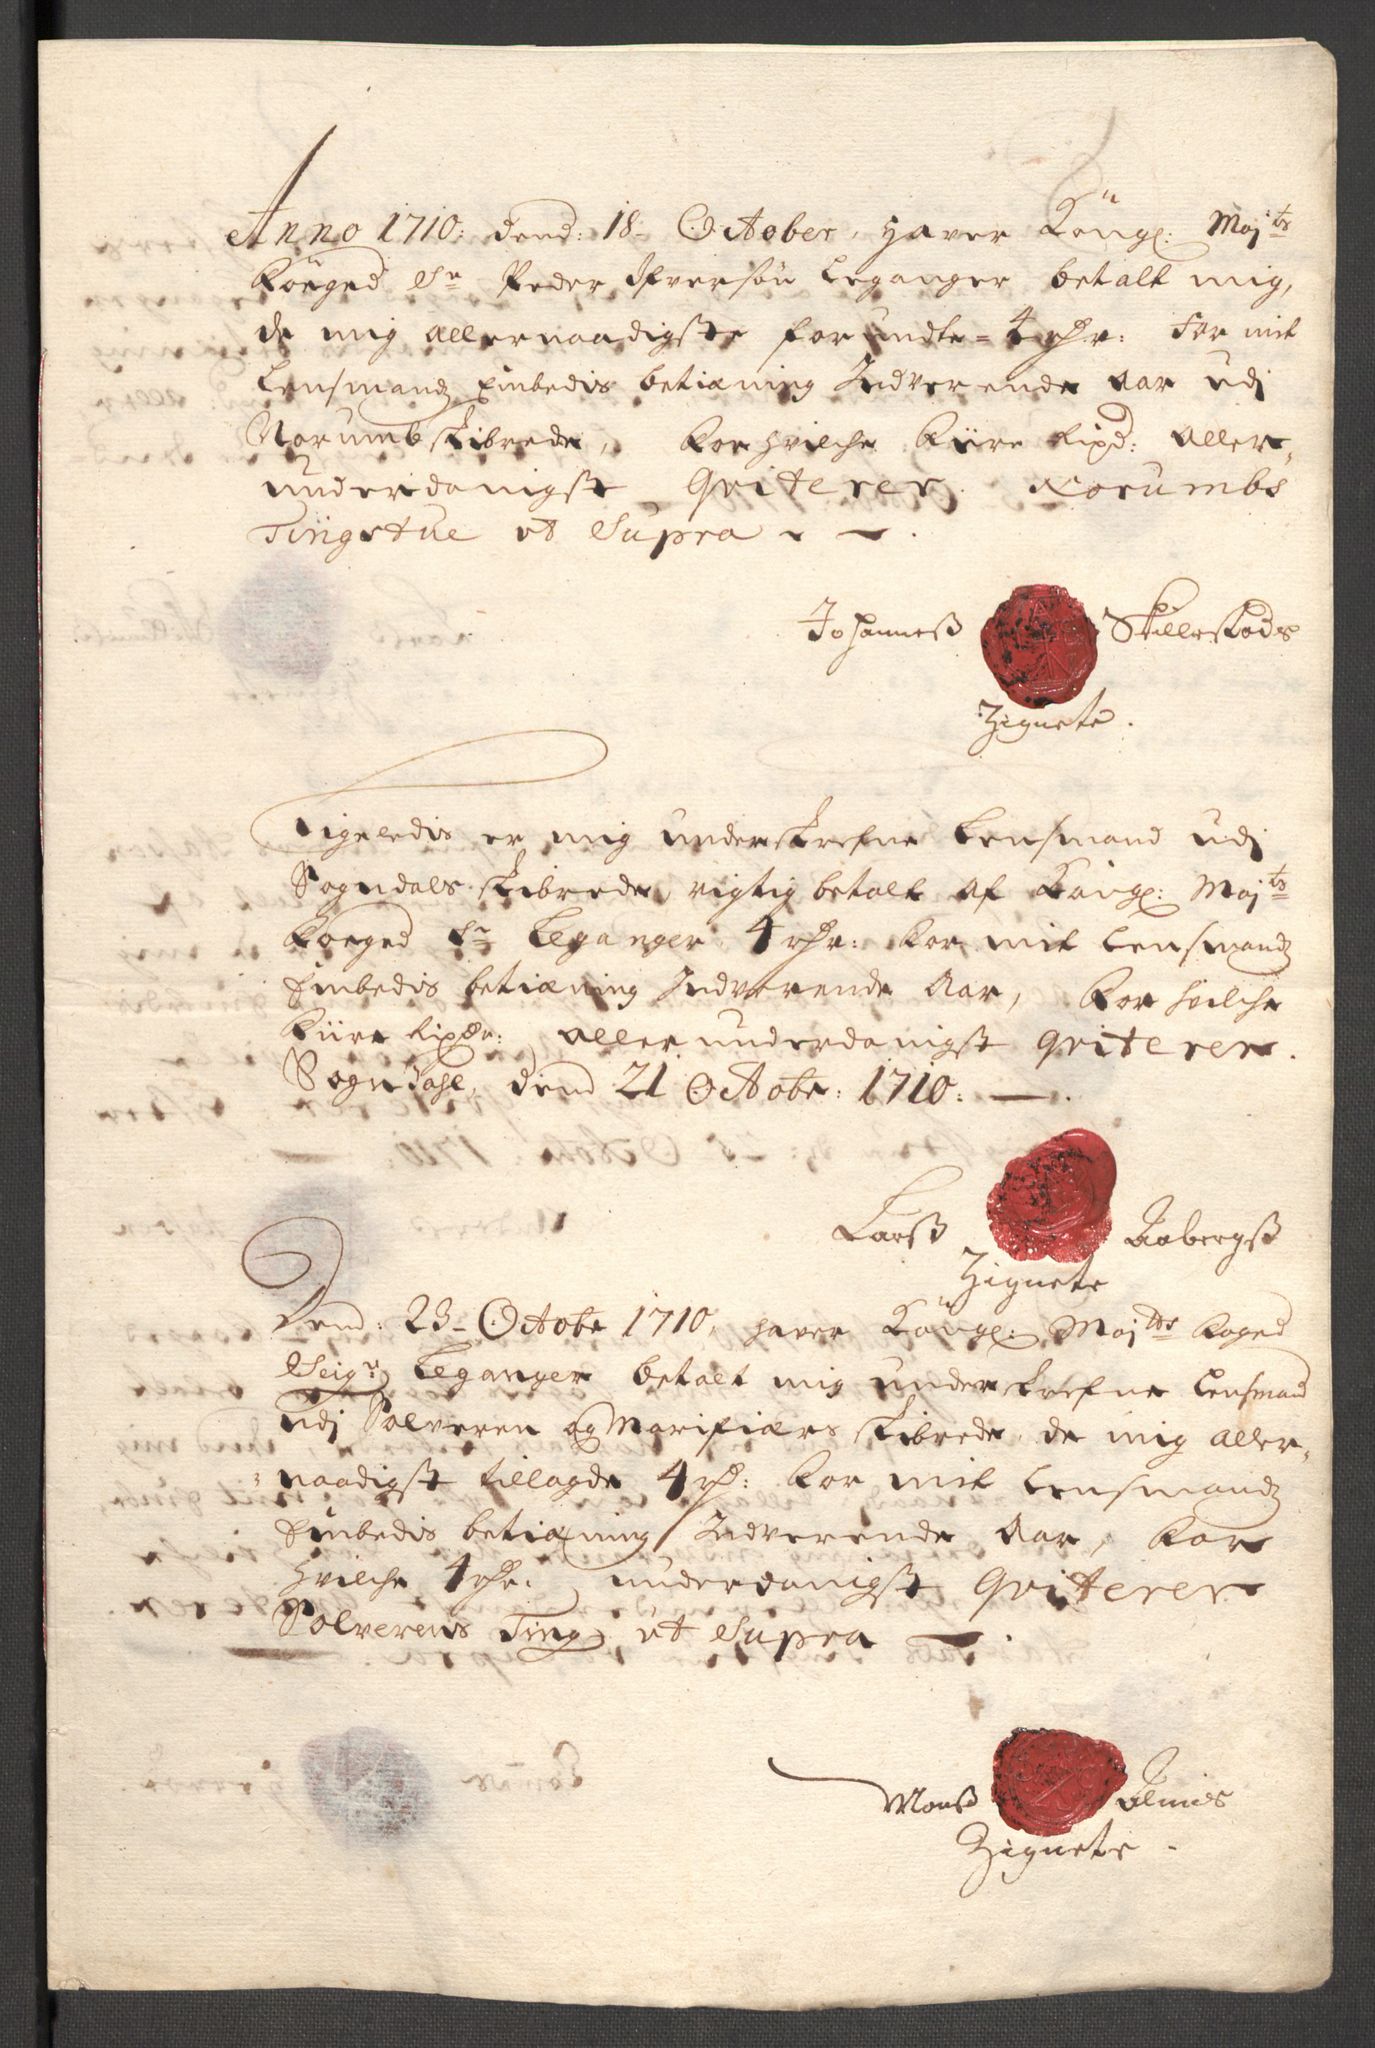 Anno 1710: dend: 18 October, haver Kongl: Maj:ts
Foeged Sr Peder Ifversøn Leganger betalt mig,
de mig allernaadigste forundte = 4 rdr: for mit
Lensmandz Embedis betiæning Indverende aar udj
Norumb skibrede, for hvilche fiire rixd: aller-
underdanigst qviterer. Norumbs
Tingstue ut Supra
Johanneß Skillestads
Zignete.
Ligeledis er mig underskrefne Lensmand udj
Sogndals skibrede, rigtig betalt af Kongl: Maj:ts
Foeged Sr Leganger 4 rdr: for mit Lensmandz
Embedis betiæning Indverende Aar, for hvilche
fiire rixdr: allerunderdanigst qviterer.
Sogndahl, dend 21 Octobr: 1710:
Larß Aabergß
Zignete
Dend: 23 Octobr 1710, haver Kongl: Maj:ts Foged
Seigr Leganger betalt mig underskrefne Lensmand
udj Solveren og Marifiærs skibrede, de mig aller-
naadigst tillagde 4 rd: for mit Lensmandz
Embedis betiæning Indverende Aar, for
hvilche 4 rdr: underdanigst qviterer
Solverens Ting ut Supra
Monß Alnies
Zignete